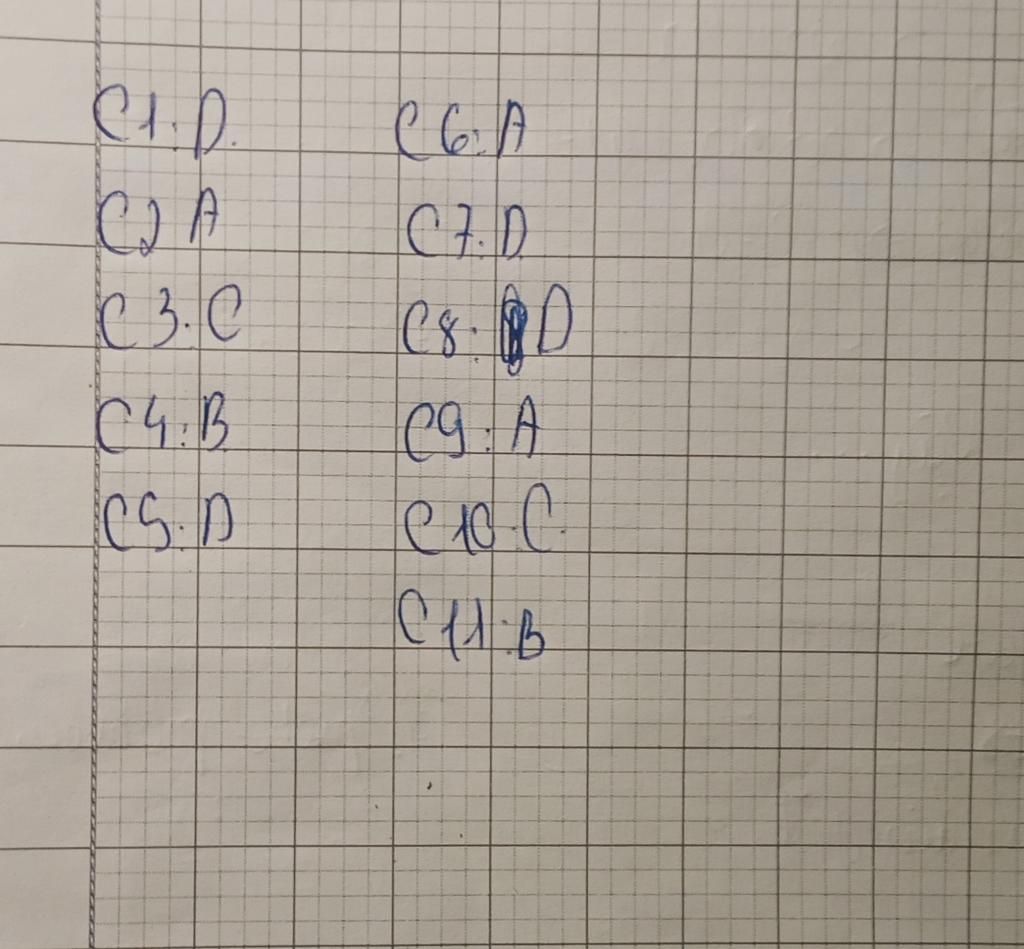 C1: D.
C2 A
C3. C
C4: B
C5: D
C6: A
C7. D
C8: D
C9: A
C10. C.
C11: B